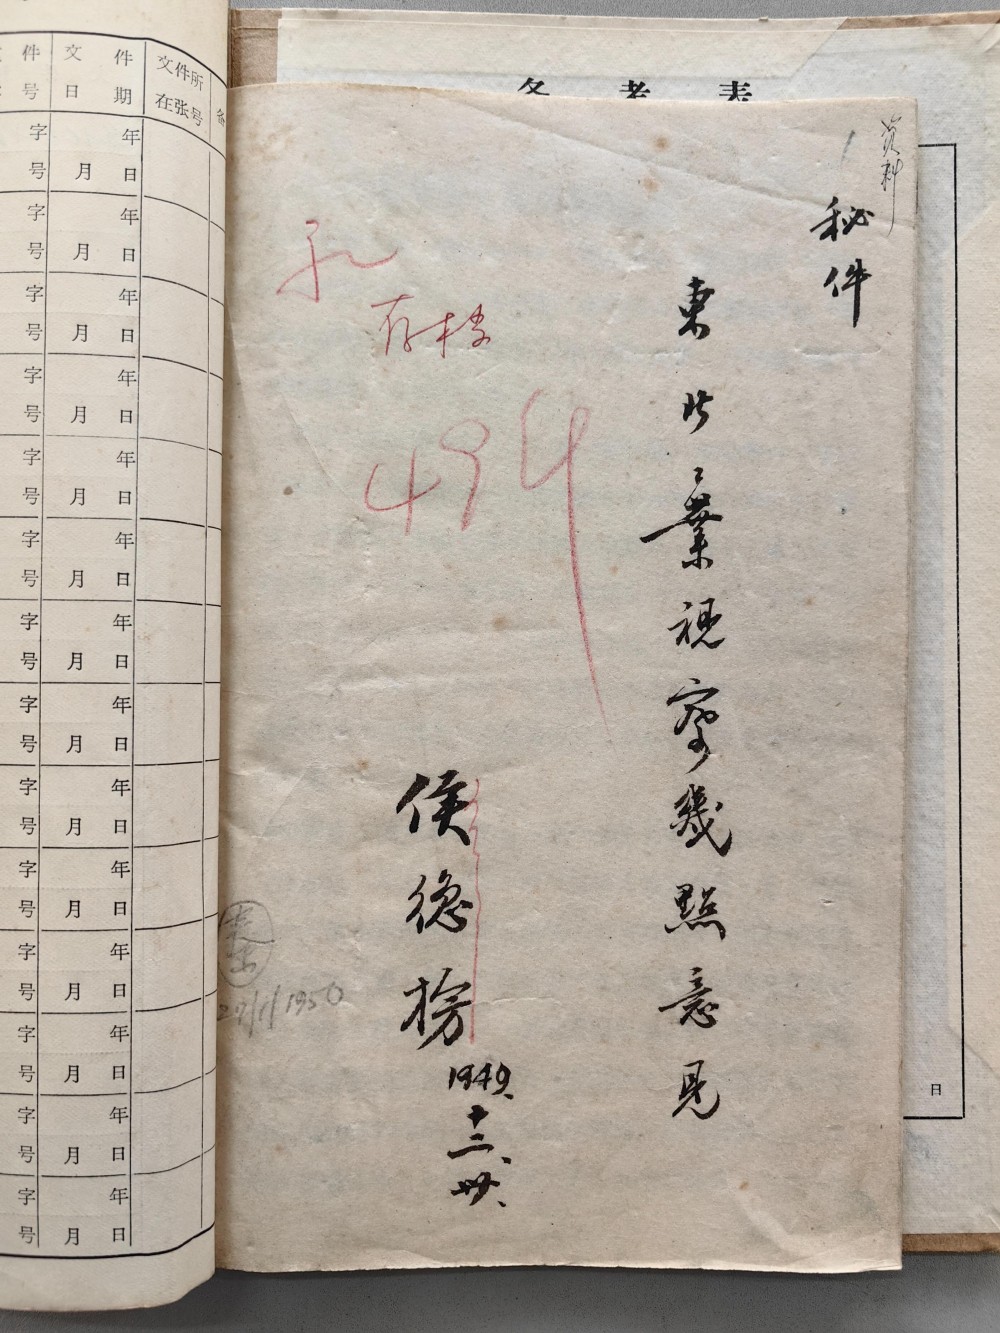 备考表
资料
秘件
东北工业视察几點意見
侯德榜
1949、
十二、
卅、
存档
494
27/1/1950
日
件 文 件 文件所
号 日 期 在张号 备
字 年
号 月 日
字 年
号 月 日
字 年
号 月 日
字 年
号 月 日
字 年
号 月 日
字 年
号 月 日
字 年
号 月 日
字 年
号 月 日
字 年
号 月 日
字 年
号 月 日
字 年
号 月 日
字 年
号 月 日
字 年
号 月 日
字 年
号 月 日